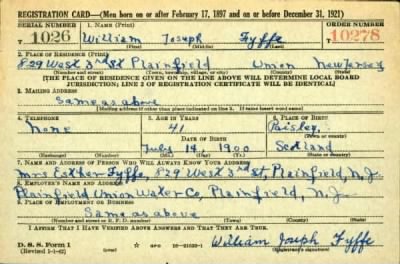 REGISTRATION CARD—(Men born on or after February 17, 1897 and on or before December 31, 1921)
SERIAL NUMBER 1. NAME (Print) ORDER NUMBER
T 1026 William Joseph Fyffe T 10278
(First) (Middle) (Last)
2. PLACE OF RESIDENCE (Print)
829 West 3rd St Plainfield Union New Jersey
(Number and street) (Town, township, village, or city) (County) (State)
[THE PLACE OF RESIDENCE GIVEN ON THE LINE ABOVE WILL DETERMINE LOCAL BOARD
JURISDICTION; LINE 2 OF REGISTRATION CERTIFICATE WILL BE IDENTICAL]
3. MAILING ADDRESS
Same as above
[Mailing address if other than place indicated on line 2. If same insert word same]
4. TELEPHONE 5. AGE IN YEARS 6. PLACE OF BIRTH
None 41 Paisley
DATE OF BIRTH (Town or county)
July 14, 1900 Scotland
(Exchange) (Number) (Mo.) (Day) (Yr.) (State or country)
7. NAME AND ADDRESS OF PERSON WHO WILL ALWAYS KNOW YOUR ADDRESS
Mrs Esther Fyffe, 829 West 3rd St, Plainfield, N.J.
8. EMPLOYER'S NAME AND ADDRESS
Plainfield Union Water Co, Plainfield, N.J.
9. PLACE OF EMPLOYMENT OR BUSINESS
Same as above
(Number and street or R. F. D. number) (Town) (County) (State)
I AFFIRM THAT I HAVE VERIFIED ABOVE ANSWERS AND THAT THEY ARE TRUE.
D. S. S. Form 1 GPO 16—21630-1 William Joseph Fyffe
(Revised 1-1-42) (Registrant's signature)